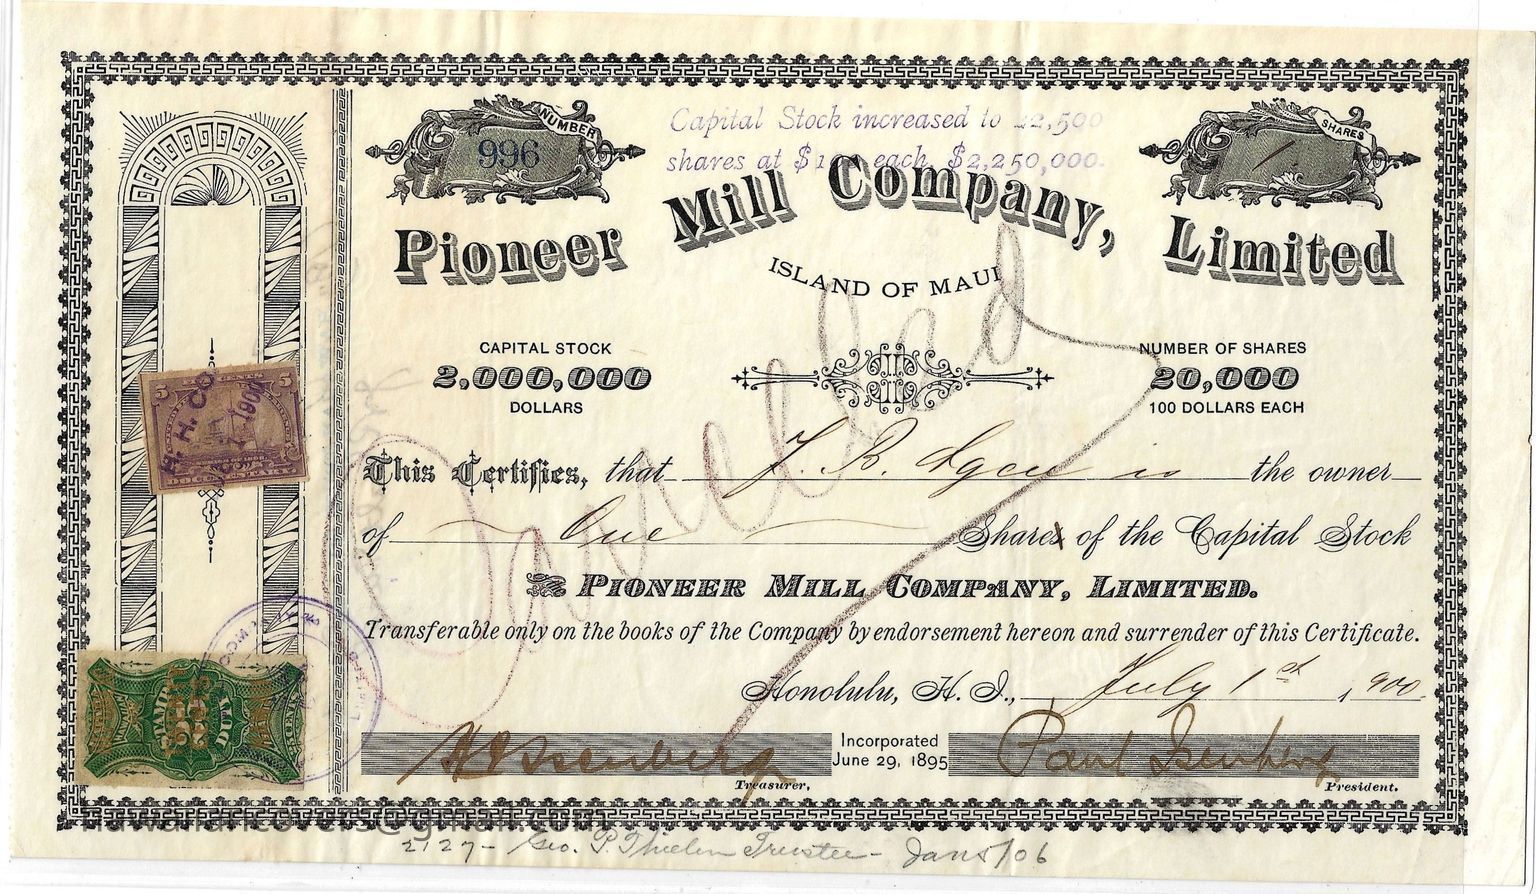 NUMBER
996
SHARES
1
Capital Stock increased to 22,500
shares at $1 each, $2,250,000.
Pioneer Mill Company, Limited
ISLAND OF MAUI
CAPITAL STOCK
2,000,000
DOLLARS
NUMBER OF SHARES
20,000
100 DOLLARS EACH
Cancelled
5 5
H. H. Co
1900
This Certifies, that F. B. is the owner
of One Share of the Capital Stock
PIONEER MILL COMPANY, LIMITED.
Transferable only on the books of the Company by endorsement hereon and surrender of this Certificate.
Honolulu, H. I., July 1st, 1900
STAMP DUTY
Incorporated
June 29, 1895
Paul Isenberg
Treasurer,
President.
hawaiiancovers@gmail.com
2127 - Geo. P. Thielen Trustee - Jan 5/06